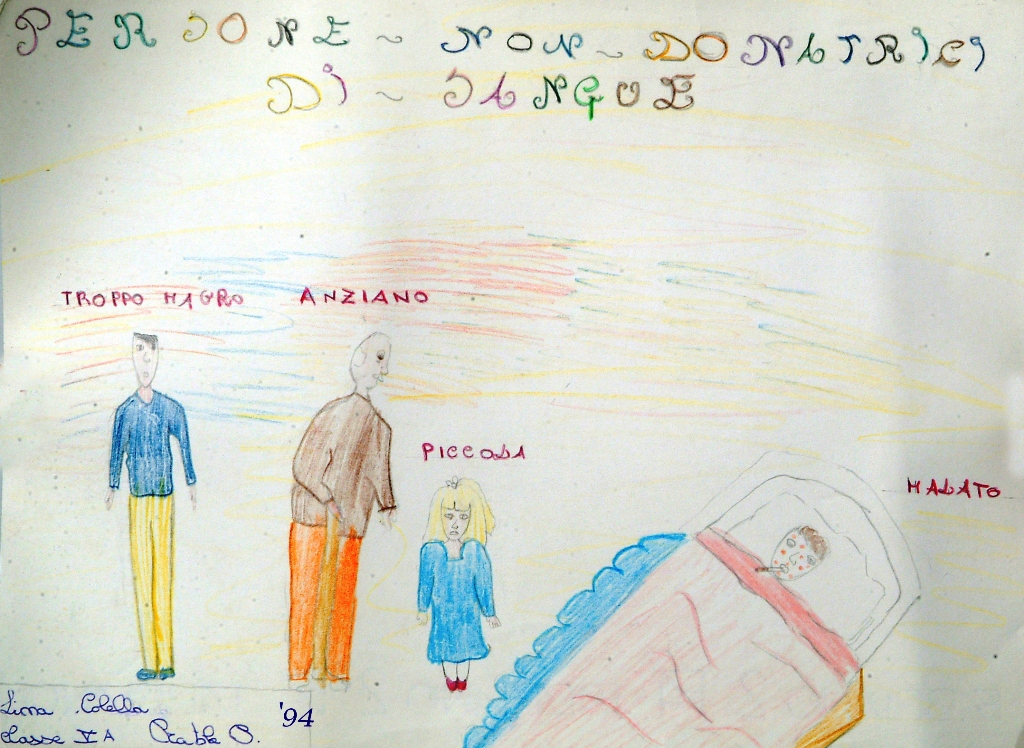 PERSONE ~ NON ~ DONATRICI
DI ~ SANGUE
TROPPO MAGRO
ANZIANO
PICCOLA
MALATO
Colella '94
classe V A